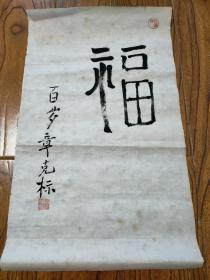 福
百岁章克标